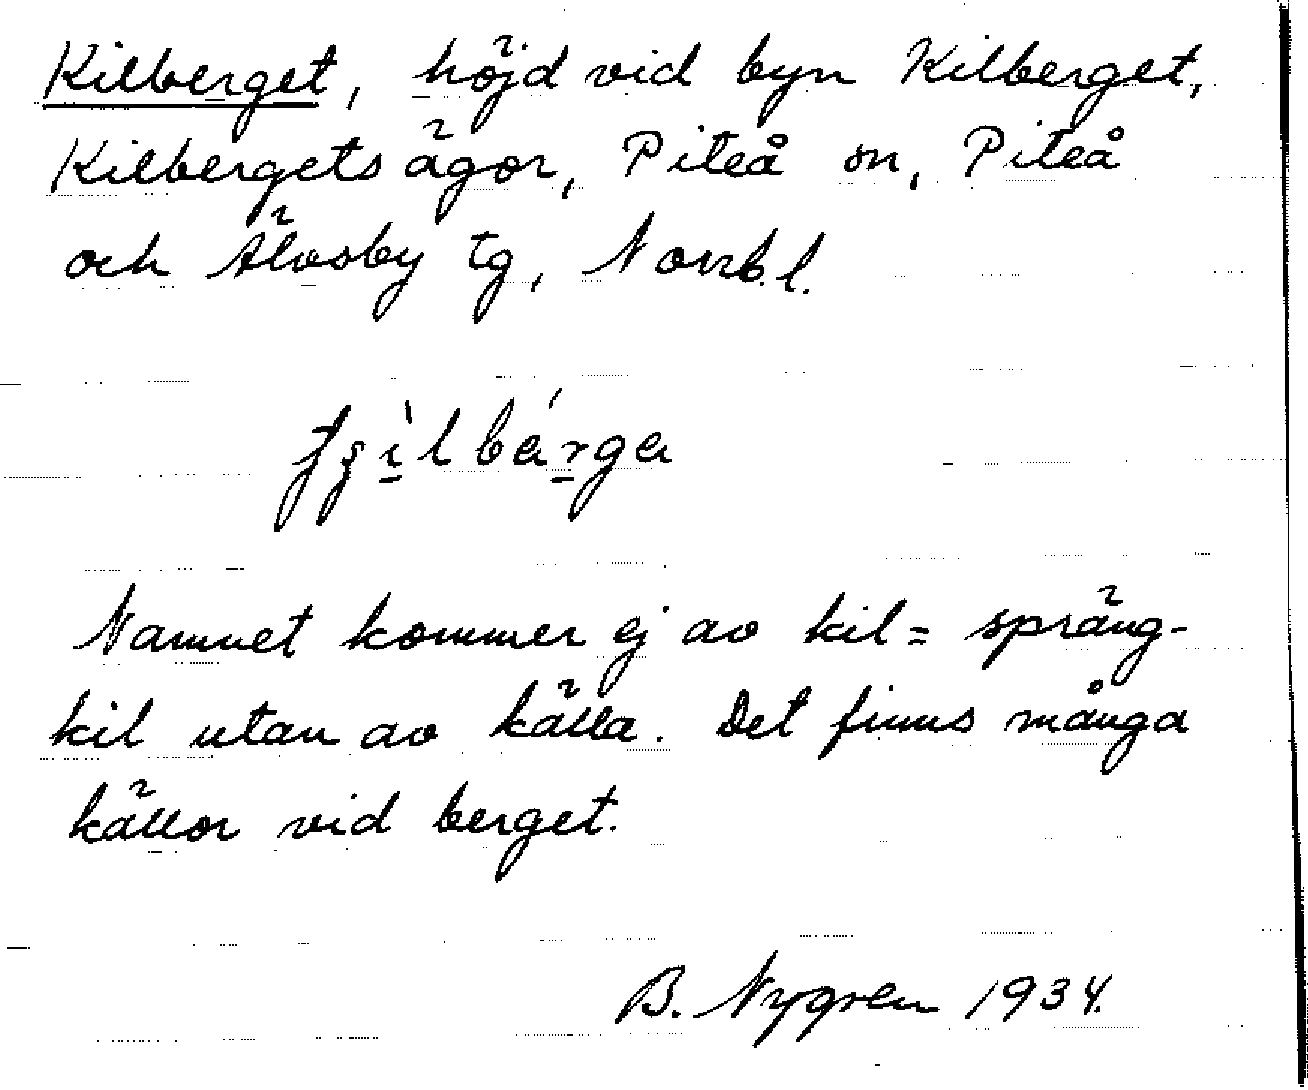 Kilberget, höjd vid byn Kilberget,
Kilbergets ägor, Piteå sn, Piteå
och Älvsby tg, Norrb.l.
Namnet kommer ej av kil = spräng-
kil utan av källa. Det finns många
källor vid berget.
B. Nygren 1934.